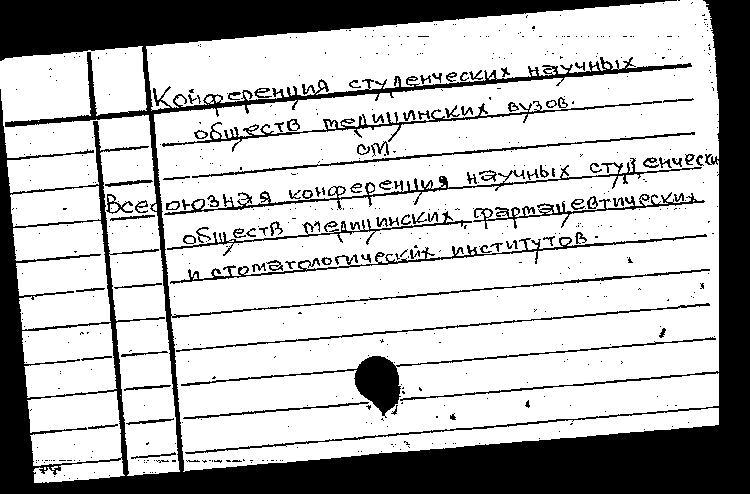 Конференция студенческих научных
обществ медицинских вузов.
см.
Всесоюзная конференция научных студенчески
обществ медицинских, фармацевтических
и стоматологических институтов.